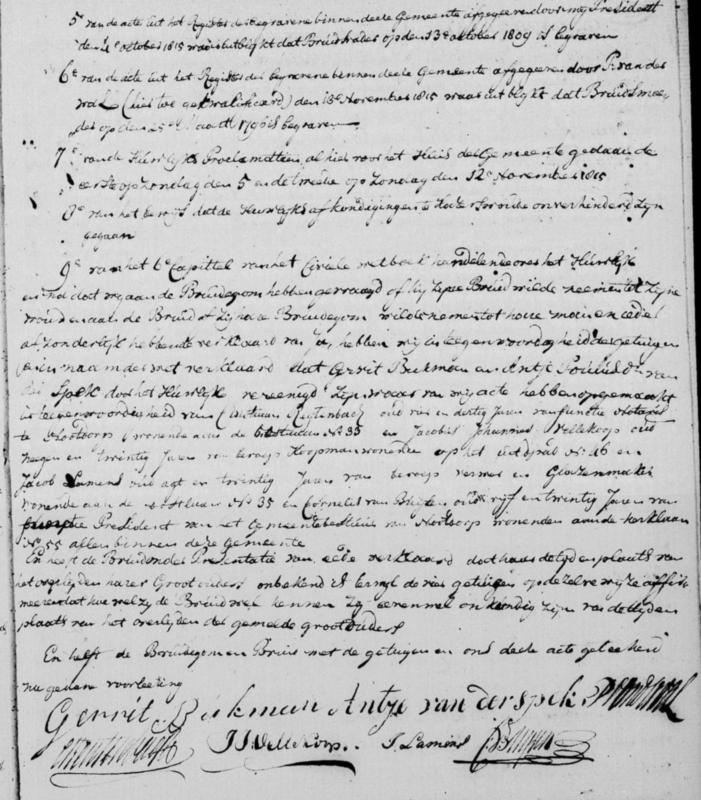 5e van de acte uit het Register der begravene binnen deese Gemeente afgegeeven door my President
den 4e october 1815 waar uit blykt dat Bruids vader op den 13e october 1809 is begraven
6e van de acte uit het Register der begravene binnen deese Gemeente afgegeeven door P. van der
Wal (hier toe gekwalificeerd) den 13e November 1815 waar uit blykt dat Bruids moe-
der op den 25e 1796 is begraven
7e van de Huwelyks Proclamatien, alhier voor het Huis deeser gemeente gedaan de
eerste op Zondag den 5 en de tweede op Zondag den 12e November 1815
8e van het bewys dat de Huwelyks afkondigingen te onverhinderd zyn
gegaan
9e van het 6e Capittel van het Civiele wetboek handelende over het Huwelyk
en na dat wy aan de Bruidegom hebben gevraagd of hy zyne Bruid wilde neemen tot zyne
vrouw en aan de Bruid of zy haare Bruidegom wilde neemen tot haare man en ieder
afzonderlyk hebbende verklaard van Ja, hebben wy in teegenwoordigheid der getuigen
in naam der wet verklaard dat Gerrit Beekman en Antje van
der Spek door het Huwelyk vereenigd zyn waar van wy acte hebben opgemaakt
in teegenwoordigheid van oud vier en dertig Jaren van functie Notaris
te woonende aan de No 33 en Jacobus Johannes Vellekoop oud
negen en twintig Jaren van beroep Koopman woonende op het No 46 en
Jacob Lamens oud agt en twintig Jaren van beroep verwer en Glazenmaker
woonende aan de No 35 en Cornelis van oud vyf en twintig Jaren van
functie President van het Gemeentebestuur van woonende aan de kerklaan
No 55 allen binnen deze Gemeente
En heeft de Bruid onder Presentatie van eede verklaard dat haar de tyd en plaats van
het overlyden harer Grootouders onbekend is terwyl de vier getuigen op dezelve wyze affir-
meeren dat hoe wel zy de Bruid wel kennen zy eevenwel onkundig zyn van de tyd en
plaats van het overlyden der gemelde grootouders
En heeft de Bruidegom en Bruid met de getuigen en ons deese acte geteekend
na gedane voorlesing
Gerrit Beekman Antje van der spek
JJ Vellekoop. J. Lamens